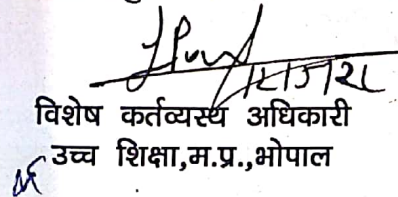 विशेष कर्तव्यस्थ अधिकारी
उच्च शिक्षा,म.प्र.,भोपाल